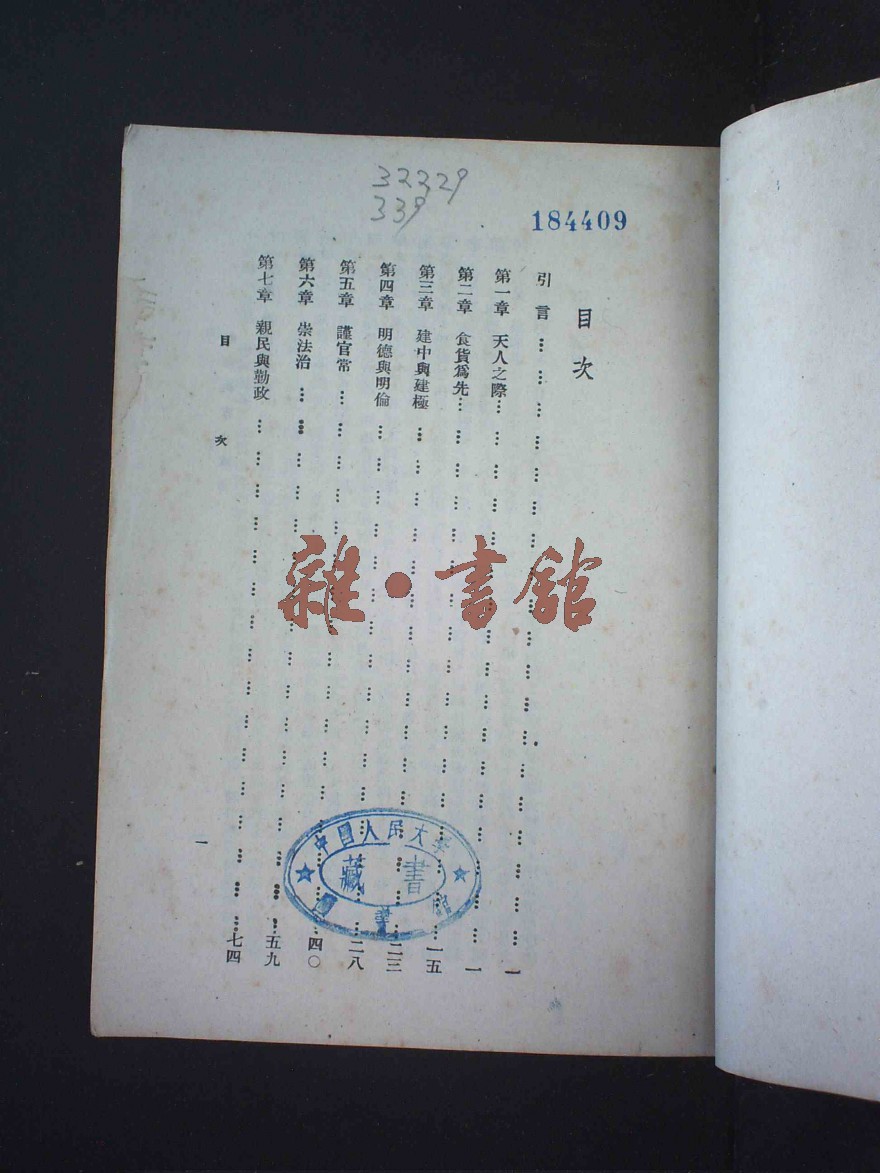 339
184409
目次
引言 … … … … … … … … … … … … … … … … 一
第一章 天人之際 … … … … … … … … … … … … … … 一
第二章 食貨爲先 … … … … … … … … … … … … … … 一五
第三章 建中與建極 … … … … … … … … … … … … … 二三
第四章 明德與明倫 … … … … … … … … … … … … … 二八
第五章 謹官常 … … … … … … … … … … … … … … 四〇
第六章 崇法治 … … … … … … … … … … … … … … 五九
第七章 親民與勤政 … … … … … … … … … … … … … 七四
目次
一
雜·書館
中國人民大學
藏書
圖書館